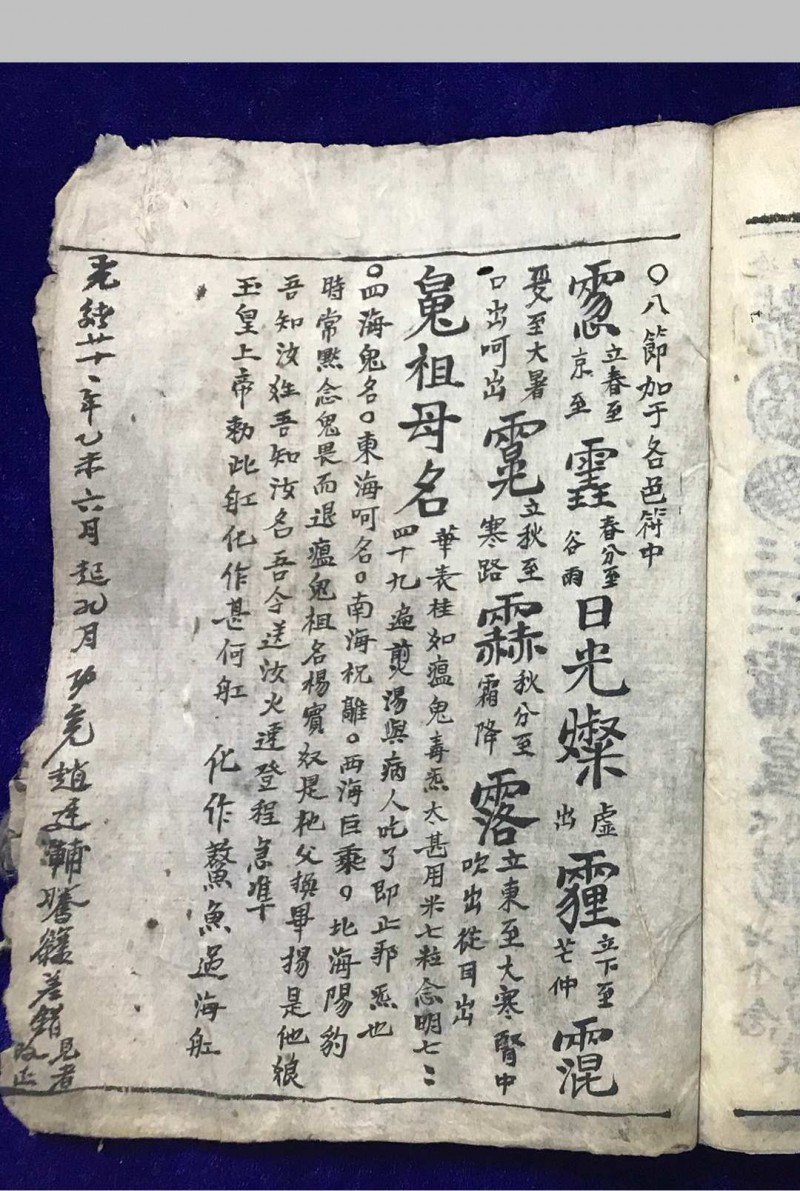 〇八節加于各邑符中
立春至京至 春分至谷雨 日光燦 虛出 霾 立下至芒仲 霓
夏至大暑口出呵出 立秋至寒路 秋分至霜降 落 立東至大寒腎中吹出從耳出
鬼祖母名 華表桂如瘟鬼毒炁太甚用米七粒念明七〻
四十九遍煎湯與病人吃了即止邪炁也
〇四海鬼名〇東海呵名〇南海祝離〇西海巨乘〇北海陽豹
時常默念鬼畏而退瘟鬼祖名楊實奴是他父換畢揚是他娘
吾知汝姓吾知汝名吾今送汝火速登程急准
玉皇上帝勅此舡化作甚何舡 化作鰲魚過海舡
光緒廿一年乙未六月起九月功完趙廷輔謄錄差錯見者改正